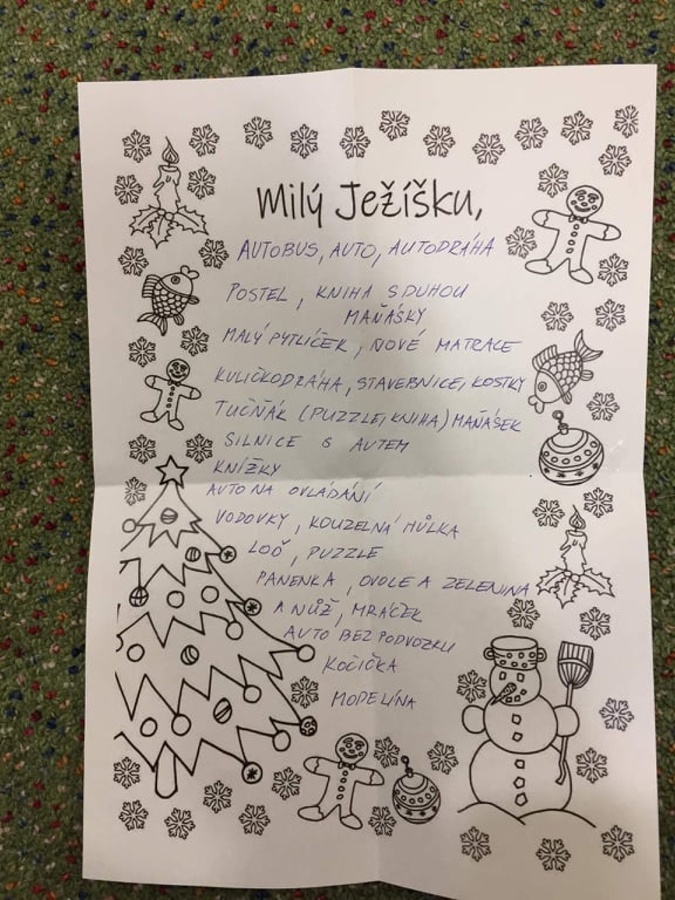 Milý Ježíšku,
AUTOBUS, AUTO, AUTODRÁHA
POSTEL, KNIHA S DUHOU
MAŇÁSKY
MALÝ PYTLÍČEK, NOVÉ MATRACE
KULIČKODRÁHA, STAVEBNICE, KOSTKY
TUČŇÁK (PUZZLE, KNIHA) MAŇÁSEK
SILNICE S AUTEM
KNÍŽKY
AUTO NA OVLÁDÁNÍ
VODOVKY, KOUZELNÁ HŮLKA
LOĎ, PUZZLE
PANENKA, OVOCE A ZELENINA
A NŮŽ, MRÁČEK
AUTO BEZ PODVOZKU
KOČIČKA
MODELÍNA